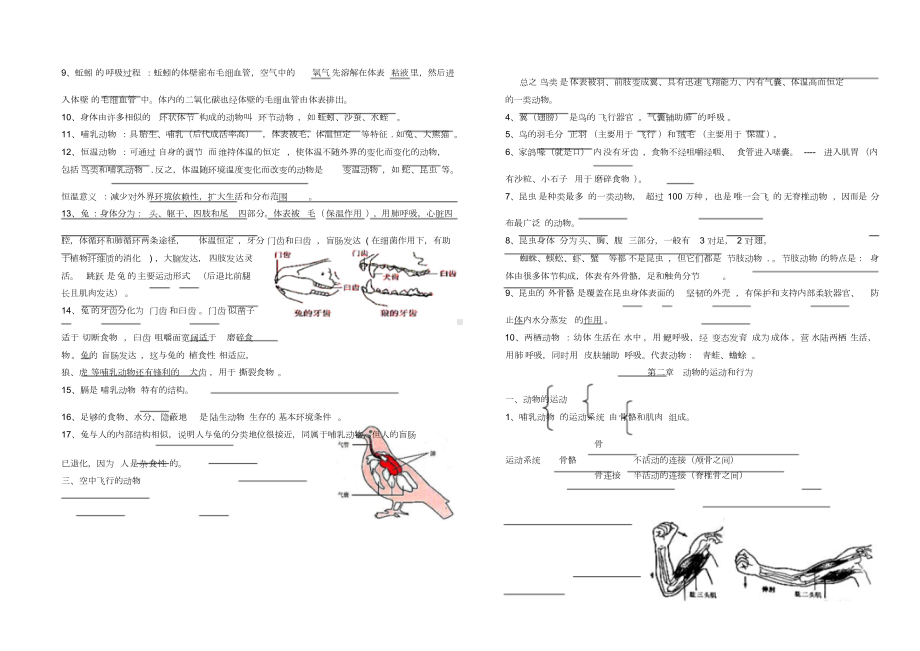 9、蚯蚓 的 呼吸过程 ：蚯蚓的体壁密布毛细血管，空气中的 氧气 先溶解在体表 粘液 里，然后进
入体壁 的 毛细血管 中。体内的二氧化碳也经体壁的毛细血管由体表排出。
10、身体由许多相似的 环状体节 构成的动物叫 环节动物 ，如 蚯蚓、沙蚕、水蛭 。
11、哺乳动物 ：具 胎生、哺乳（后代成活率高） ，体表被毛、体温恒定 等特征 .如兔、大熊猫 。
12、恒温动物 ：可通过 自身的调节 而 维持体温的恒定 ，使体温不随外界的变化而变化的动物，
包括 鸟类和哺乳动物 .反之，体温随环境温度变化而改变的是 变温动物 ，如 蛇、昆虫 等。
恒温意义 ：减少对外界环境依赖性，扩大生活和分布范围 。
13、兔 ：身体分为： 头、躯干、四肢和尾 四部分。体表被 毛（保温作用 ），用肺呼吸，心脏四
腔，体循环和肺循环两条途径， 体温恒定 ，牙分 门齿和臼齿 ，盲肠发达 （在细菌作用下，有助
于植物纤维质的消化 ），大脑发达，四肢发达灵
活。 跳跃 是 兔 的 主要运动形式 （后退比前腿
长且肌肉发达）。
门齿
臼齿
兔的牙齿
门齿
犬齿
臼齿
狼的牙齿
14、兔 的 牙齿分化为 门齿 和臼齿 。门齿 似凿子
适于 切断食物 ，臼齿 咀嚼面宽阔适于 磨碎食
物。兔的 盲肠发达 ，这与兔的 植食性 相适应。
狼、虎 等哺乳动物还有锋利的 犬齿 ，用于 撕裂食物 。
15、膈是 哺乳动物 特有的结构。
16、足够的食物、水分、隐蔽地 是 陆生动物 生存的 基本环境条件 。
17、兔与人的内部结构相似，说明人与兔的分类地位很接近，同属于哺乳动物。但人的盲肠
已退化，因为 人是杂食性 的。
三、空中飞行的动物
气管
肺
气囊
总之 鸟类 是 体表被羽、前肢变成翼、具有迅速飞翔能力、内有气囊、体温高而恒定
的一类动物。
4、翼（翅膀） 是鸟的 飞行器官 。气囊辅助肺 的呼吸 。
5、鸟的羽毛分 正羽 （主要用于 飞行 ）和 绒毛 （主要用于 保温 ）。
6、家鸽喙 （就是口） 内没有牙齿 ，食物不经咀嚼经咽、 食管进入嗉囊。 ---- 进入肌胃 （内
有沙粒、小石子 用于 磨碎食物 ）。
7、昆虫 是 种类最多 的一类动物， 超过 100 万种 ，也是 唯一会飞 的 无脊椎动物 ，因而是 分
布最广泛 的动物。
8、昆虫身体 分为 头、胸、腹 三部分，一般有 3 对足，2 对翅。
蜘蛛、蜈蚣、虾、蟹 等都 不是昆虫 ，但它们都是 节肢动物 .。节肢动物 的特点是 ： 身
体由很多体节构成，体表有外骨骼，足和触角分节 。
9、昆虫的 外骨骼 是 覆盖在昆虫身体表面的 坚韧的外壳 ，有保护和支持内部柔软器官、 防
止体内水分蒸发 的作用 。
10、两栖动物 ：幼体 生活在 水中 ，用 鳃呼吸，经 变态发育 成为 成体 ，营 水陆两栖 生活，
用肺 呼吸，同时用 皮肤辅助 呼吸。代表动物： 青蛙、蟾蜍 。
第二章 动物的运动和行为
一、动物的运动
1、哺乳动物 的运动系统 由 骨骼和肌肉 组成。
骨
运动系统 骨骼 不活动的连接（颅骨之间）
骨连接 半活动的连接（脊椎骨之间）
肱三头肌
伸肘
肱二头肌